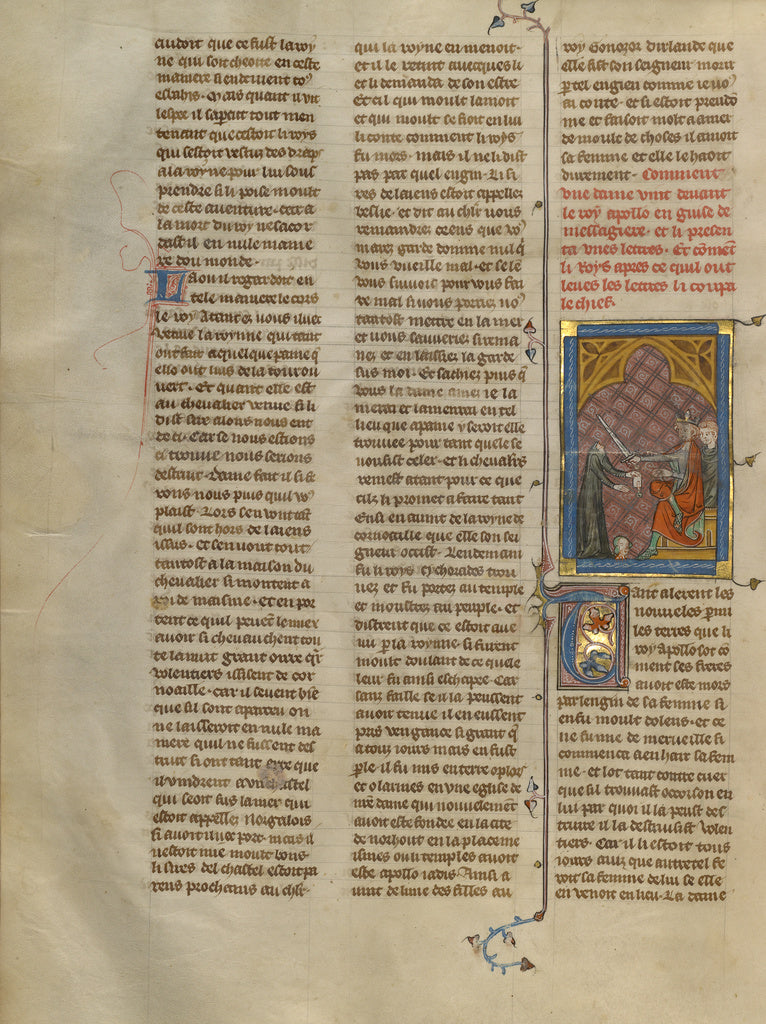 cuidoit que ce fust la roy
ne qui soit cheoite en ceste
maniere si en devient toꝰ
esbahis. Mais quant il vit
lespee il saperceut tout men
tenant que cestoit li roys
qui sestoit vestuz des draps
a la royne pour lui sous
prendre si li poise moult
de ceste aventure. car a
la mort du roy ne sacor
dast il en nule manie
re dou monde.
La ou il regardoit en
tele maniere le cors
le roy Atant ez vous illuec
venue la roynne qui tant
ont fait a quelque paine q̄
elle ont luis de la tour ou
vert. Et quant elle est
au chevalier venue si li
dist sire alons nous ent
de ci. Car se nous estions
ci trouve nous serions
destruit. Dame fait il si fe
rons nous puis quil voꝰ
plaist. Lors sen vont ast
quil sont hors de laiens
issus. et sen vont tout
tantost a la maison du
chevalier si montent a
poi de maisnie. et en por
tent ce quil peuent lenuer
avoir si chevauchent tou
te la nuit grant oirre q̄r
volentiers ississent de cor
noaille. car il sevent bie
que sil sont aparceu on
ne laisseroit en nule ma
niere quil ne fussent des
truit si ont tant erre que
il vindrent a un chastel
qui seoit sus la mer qui
estoit appellez Norgalois
si avoit illuec port. mais il
nestoit mie moult bons
li sires del chastel estoit pa
rens prochains au chl̄r.
qui la royne en menoit.
et il le retint avecques li
et li demanda de son estre
Et cil qui moult lamoit
et qui moult se fioit en lui
li conte comment li roys
fu mors. mais il ne li dist
pas par quel engin. Li si
res de laiens estoit appellez
veslie. et dit au chl̄r vous
remaindrez ceens que voꝰ
mavez garde domme nul q̄
vous vueille mal. et se le
vous savoie pour vous fai
re mal si vous porriez noꝰ
tantost mettre en la mer
et vous sauveriez si rema
nez et en laissiez la garde
sus moi. Et sachiez puis q̄
vous la dame amez ie la
metrai et lamenrai en tel
lieu que a paine y seroit elle
trouvee pour tant quele se
vousist celer. et li chevalꝰrs
remest atant pour ce que
cilz li promet a faire tant
Ensi en avint de la royne de
cornoaille que elle son sei
gneur occist. Lendemain
fu li roys Mehorades trou
vez et fu portez au temple
et moustrez au peuple. et
distrent que ce estoit ave
nu par la roynne. si furent
moult doulant de ce quele
leur fu ainsi eschapee. Car
sanz faille se il la peussent
avoir tenue il en eussent
pris vengance si grant q̄
a touz iours mais en fust
parle. il fu mis en terre o plors
et o larmes en une eglise de
nr̄e dame qui nouvelement
avoit este fondee en la cite
de norhout en la place me
ismes ou li temples avoit
este apollo iadis. Ainsi a
vint de lune des filles au
roy Gonozor dirlande que
elle fist son seigneur morir
par tel engien comme ie voꝰ
ai conte. et si estoit preudo
me et faisoit molt a amer
de moult de choses il amoit
sa femme et elle le haoit
durement. Comment
une dame vint devant
le roy apollo en guise de
messagiere. et li presen
ta unes lettres. Et com̄et
li roys apres ce quil out
leues les lettres li coupa
le chief.
Tant alerent les
nouveles parmi
les terres que li
roy apollo sot co
ment ses freres
avoit este mors
par lengin de sa femme si
en fu moult dolens. et ce
ne fu mie de merveille si
commenca a en hair sa fem
me. et lot tant contre cuer
que sil trouvast occoison en
lui par quoi il la peust des
truire il la destruisist volen
tiers. Car il estoit tous
iours avis que autretel fe
roit sa femme de lui se elle
en venoit en lieu. La dame